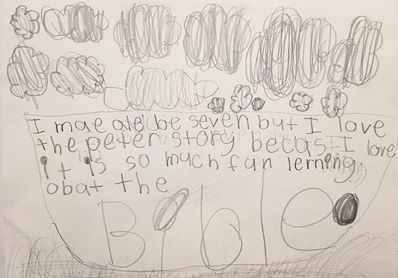 I mae ole be seven but I love
the peter story becas I love
it is so much fun lerning
obat the
Bible